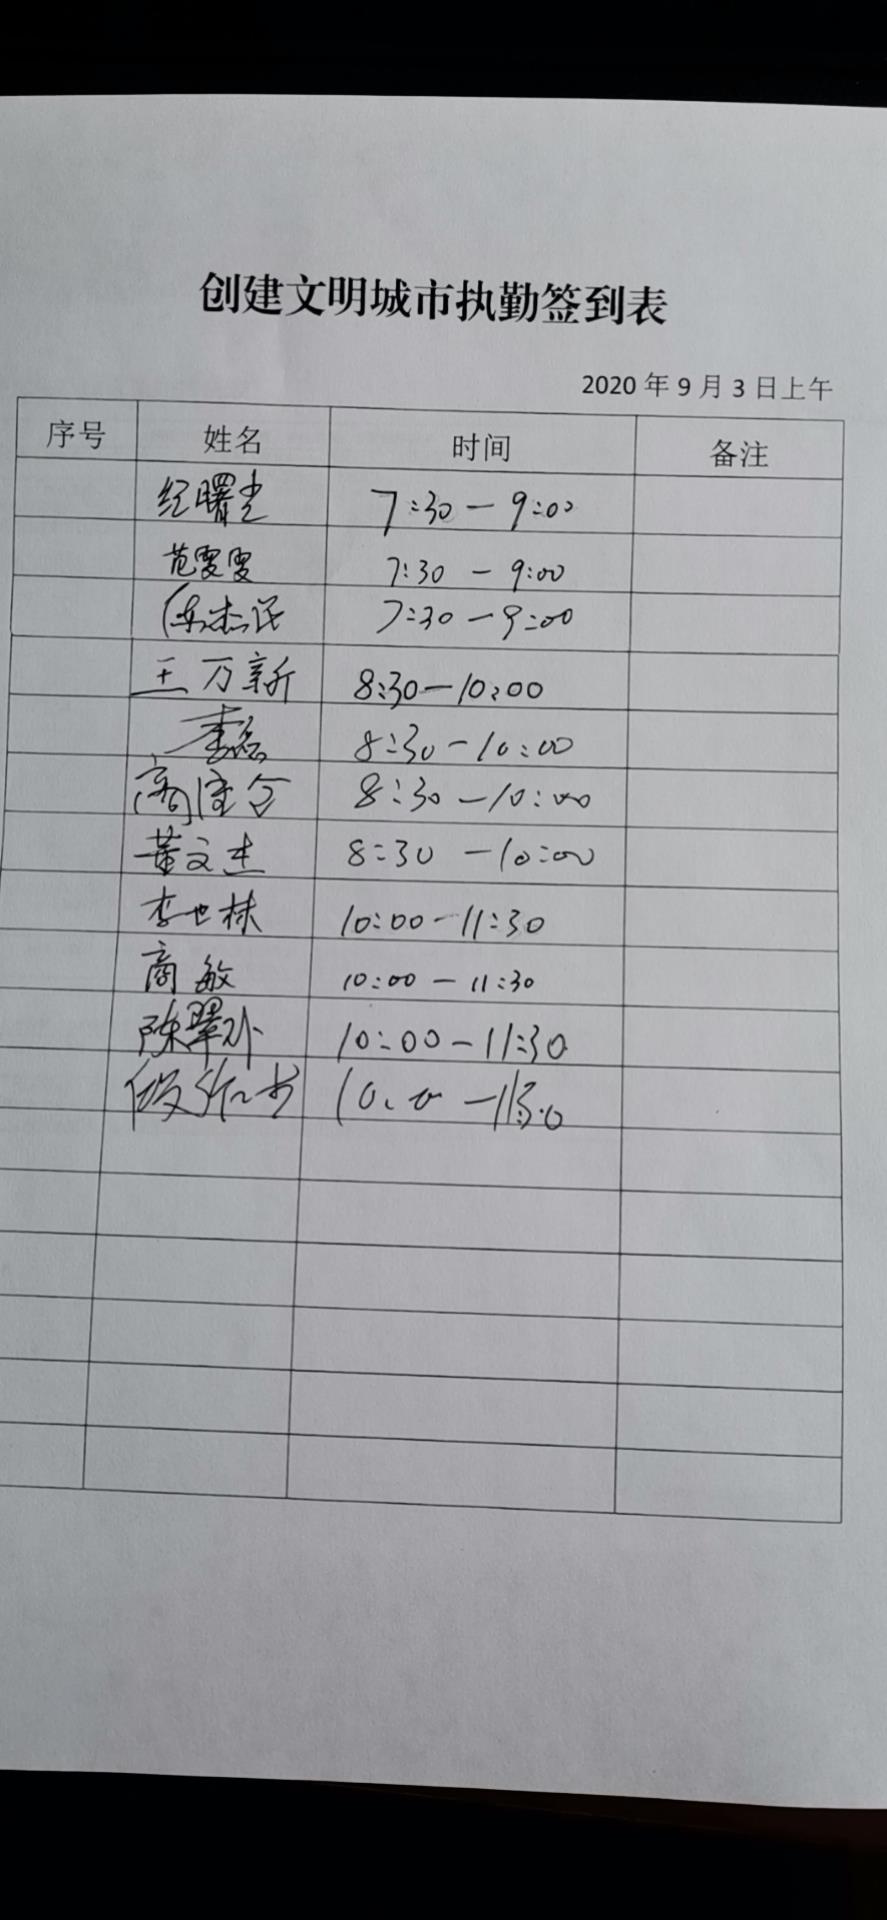 创建文明城市执勤签到表
2020年9月3日上午
序号 姓名 时间 备注
纪曙光 7:30-9:00
范雯雯 7:30-9:00
陈杰民 7:30-9:00
王万新 8:30-10:00
李磊 8:30-10:00
8:30-10:00
董文杰 8:30-10:00
李世林 10:00-11:30
商敏 10:00-11:30
陈翠外 10:00-11:30